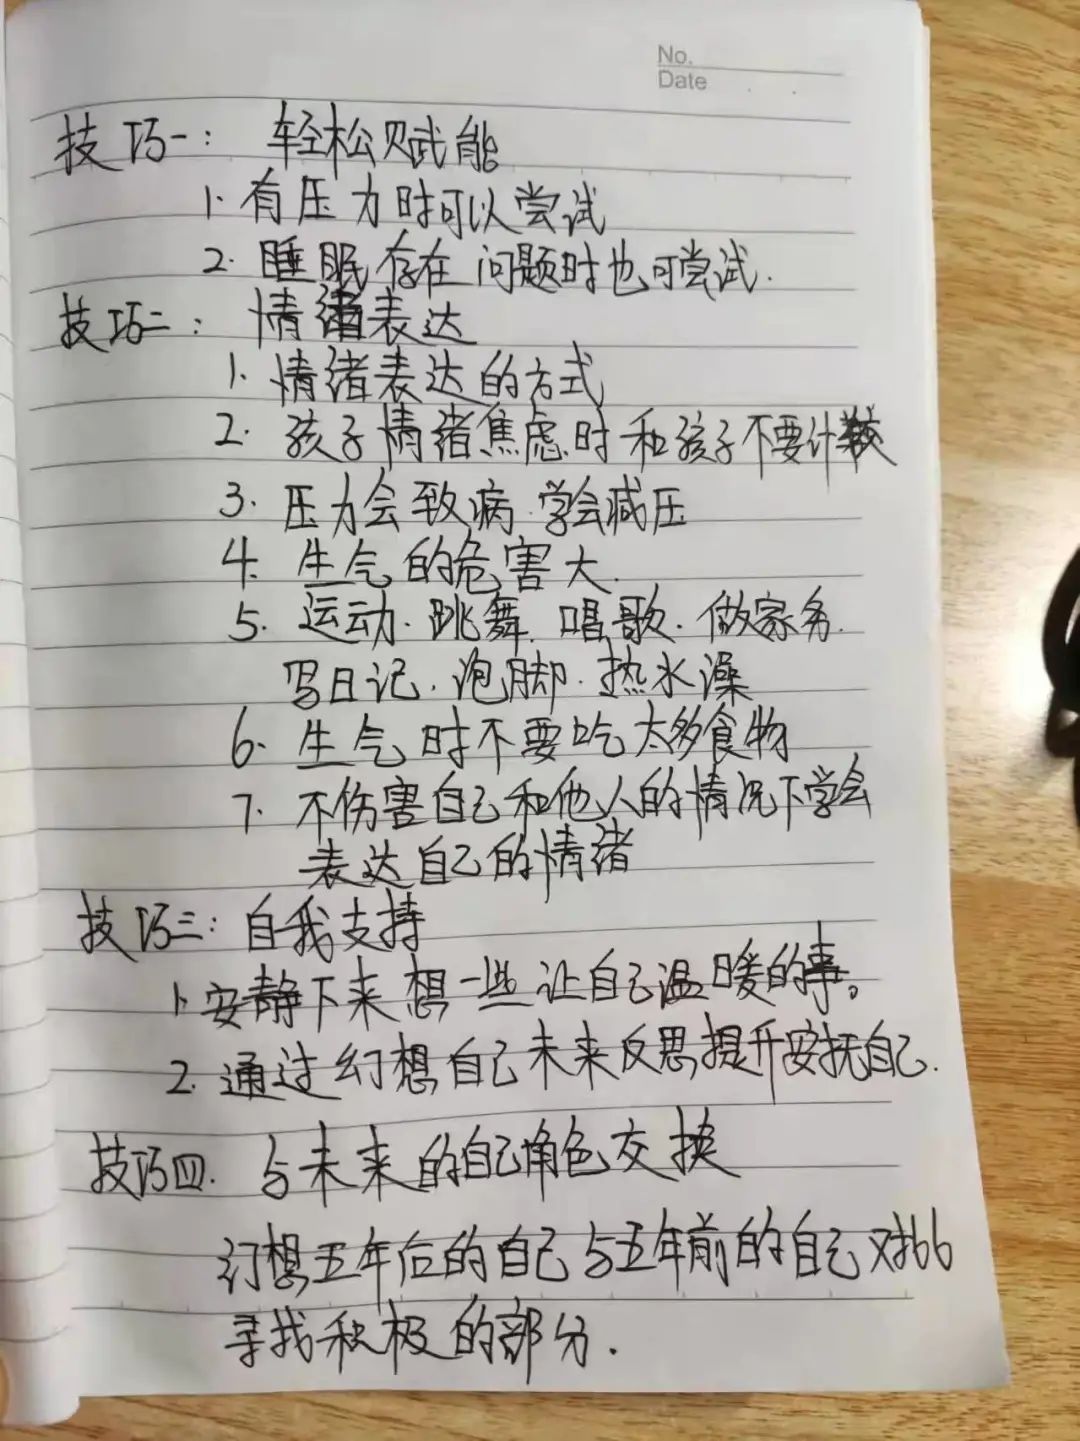 No.
Date
技巧一: 轻松赋能
1. 有压力时可以尝试
2. 睡眠存在问题时也可尝试.
技巧二: 情绪表达
1. 情绪表达的方式
2. 孩子情绪焦虑时和孩子不要计较
3. 压力会致病.学会减压
4. 生气的危害大.
5. 运动.跳舞.唱歌.做家务.
写日记.泡脚.热水澡
6. 生气时不要吃太多食物
7. 不伤害自己和他人的情况下学会
表达自己的情绪
技巧三: 自我支持
1. 安静下来想一些让自己温暖的事。
2. 通过幻想自己未来反思提升安抚自己.
技巧四. 与未来的自己角色交换
幻想五年后的自己与五年前的自己对比
寻找积极的部分.